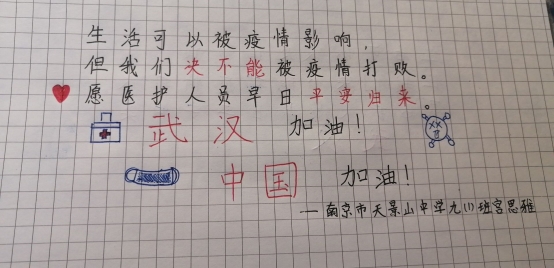 生活可以被疫情影响，
但我们决不能被疫情打败。
愿医护人员早日平安归来。
武汉 加油！
中国 加油！
—南京市天景山中学九(1)班宫思雅